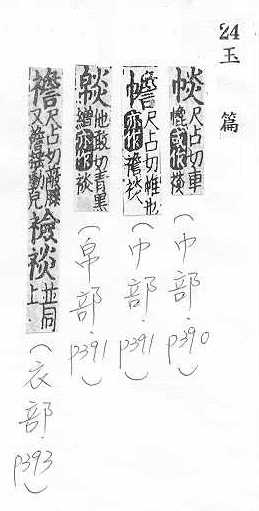 24玉篇
㡊尺占切車㡘或作裧（巾部．p390）
幨尺占切帷也亦作襜裧（巾部．p391）
他敢切青黑繒亦作㲜（帛部．p391）
襜尺占切蔽膝又襜襜動皃裧並同上（衣部．p393）